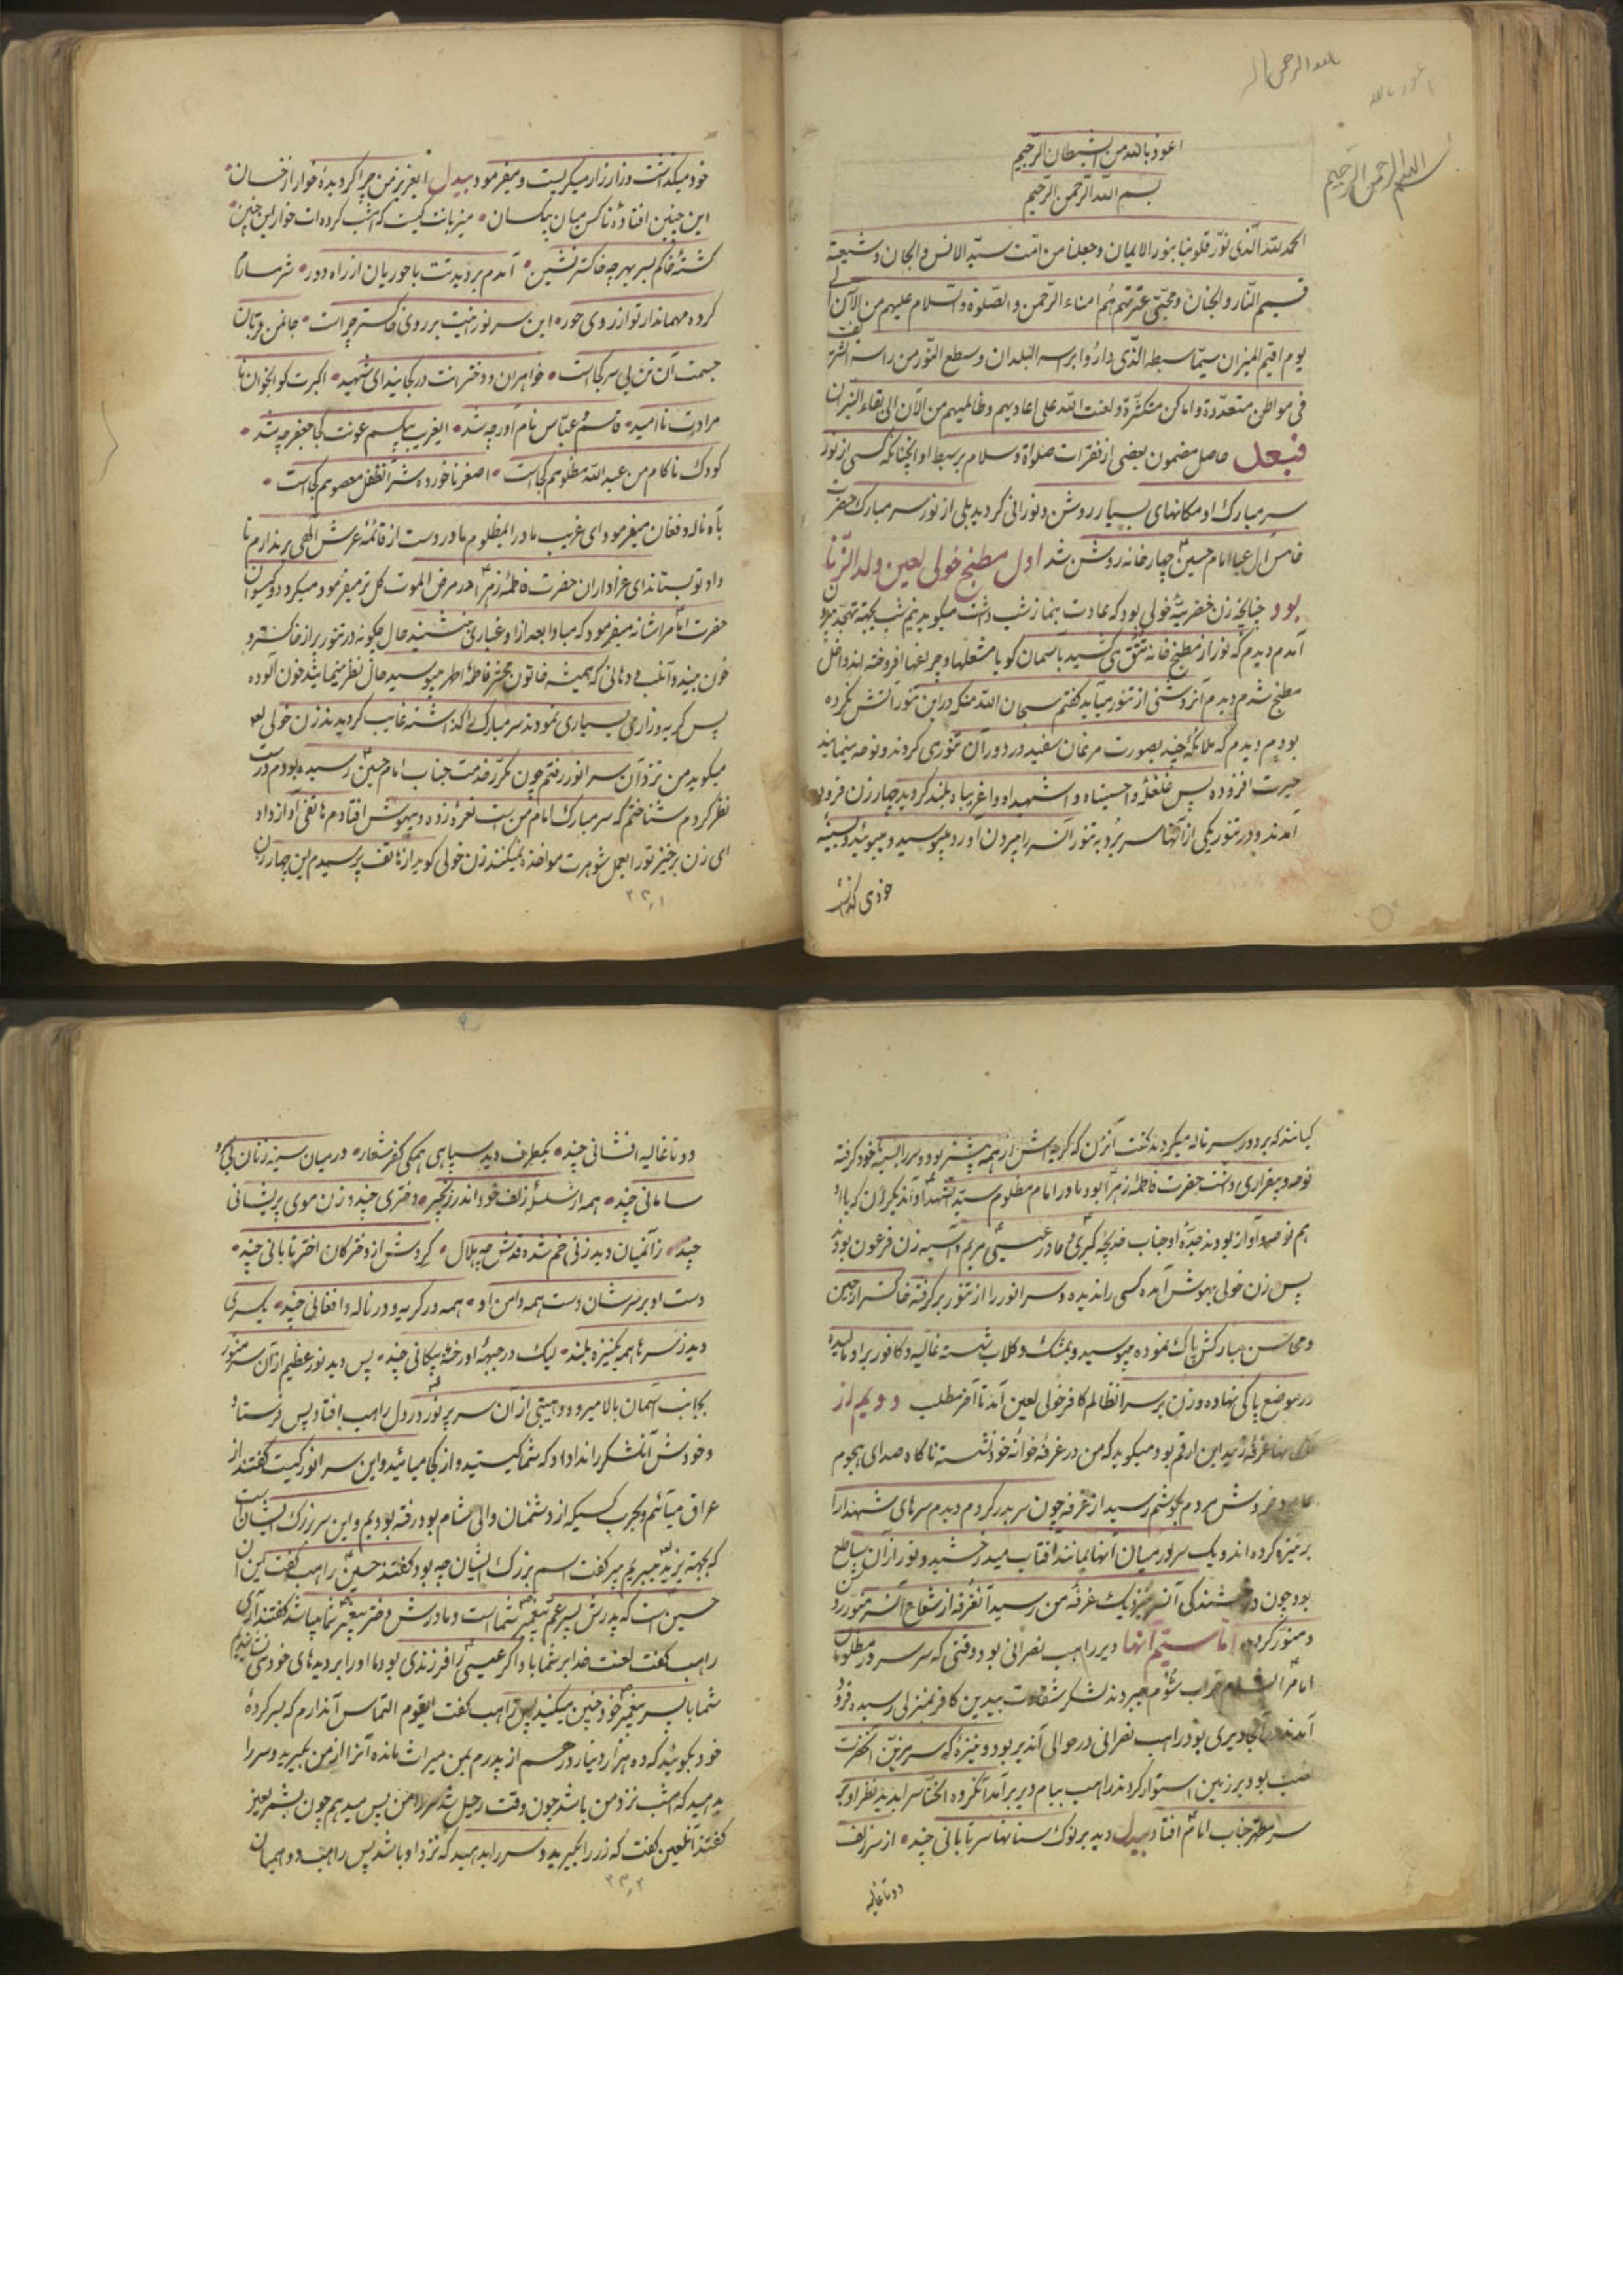 بسم الله الرحمن الرحیم
اعوذ بالله من الشیطان الرجیم
بسم الله الرحمن الرحیم
الحمد لله الذی نوّر قلوبنا بنور الایمان وجعلنا من امّت سیّد الانس والجان وشیعته
قسیم النّار والجنان ومحبّی عترتهم هُم امناء الرّحمن والصّلوة والسّلام علیهم من الآن الی
یوم اقیم المیزان سیّما سبطه الّذی دارُوا براسه البلدان وسطع النّور من راسه الشریف
فی مواطن متعدّدة واماکن متکثّرة ولعنت الله علی اعادیهم وظالمیهم من الآن الی بقاء النیّران
فبعد حاصل مضمون بعضی از فقرات صلواة وسلام بر سبط او انچنانکه کسی از نور
سر مبارک او مکانهای بسیار روشن ونورانی گردید بلی از نور سر مبارک حضرت
خامس ال عبا امام حسین چهار خانه روشن شد اول مطبخ خولی لعین ولد الزّنا
بود چنانچه زن خضریهٔ خولی بود که عادت بنماز شب داشت میگوید نیم شب بجهة تهجّد بیرون
آمدم دیدم که نور از مطبخ خانه تتق می کشید باسمان گویا مشعلها وچراغها افروخته اند داخل
مطبخ شدم دیدم آنروشنی از تنور میآید گفتم سبحان الله منکه در این تنور آتش نکرده
بودم دیدم که ملائکهٔ چند بصورت مرغان سفید در دور آن تنوری گردند ونوحه مینمایند
حیرت افزوده پس غلغلهٔ واحسیناه واشهیداه وواغریباه بلند گردید چهار زن فرود
آمدند ودر تنور یکی از آنها سر بُرد به تنور آنسر را بیرون آورد ومیبوسید ومیبوئید وبسینه
خود می گذاشت
خود میگذاشت وزار زار میگریست ومیفرمود بیدل ایعزیز من چرا گردیدهٔ خوار از خسان
این چنین افتادهٔ ناکس میان بیکسان میزبانت کیست که امشب کرده ات خوار این چنین
کشتهٔ خاکم بسر بهر چه خاکستر نشین آمدم بر دیدنت با حوریان از راه دور شرمسارم
کرده مهماندار تو از روی حور این سر نور زینت بر روی خاکستر چراست جان من قربان
جسمت آن تن بی سر کجاست خواهران ودخترانت در کجایند ای شهید اکبرت کو انجوان نا
مرادت ناامید قاسم عبّاس نام آور چه شد ایغریب بیکسم عونت کجا جعفر چه شد
کودک ناکام من عبد الله مظلوم کجاست اصغر ناخورده شیر انطفل معصوم کجاست
بآه ناله وفغان میفرمود ای غریب مادر ایمظلوم مادر دست از قائمهٔ عرش الهی بر ندارم تا
داد تو بستاند ای عزاداران حضرت فاطمهٔ زهرا در مرض الموت گل تر میفرمود میکرد وگیسوان
حضرت امام را شانه میفرمود که مبادا بعد از او غباری بنشیند حال چگونه در تنور پر از خاکستر و
خون ببیند وآنلب ودهانی که همیشه خاتون محشر فاطمهٔ اطهر میبوسید حال نظر مینماید خون آلوده
پس گریه وزارمی بسیاری نمودند سر مبارک را گذاشته غایب گردیدند زن خولی لعین
میگوید من نزد آن سر انور رفتم چون مکرّر خدمت جناب امام حسین رسیده بودم درست
نظر کردم شناختم که سر مبارک امام من است نعره زده وبیهوش افتادم هاتفی آواز داد
ای زن برخیز تو را بعمل شوهرت مواخذه نمیکنند زن خولی گوید از هاتف پرسیدم این چهار زن
کیانند که بر دور سر ناله میکردند گفت آنزن که گریه اش از همه بیشتر بود وسر را بسینه خود گرفته
نوحه وبیقراری داشت حضرت فاطمهٔ زهرا بود مادر امام مظلوم سیّد الشهدا وآندیگر زن که با او
هم نوحه وآواز بودند جدّهٔ او جناب خدیجهٔ کبری ومادر عیسی مریم وآسیه زن فرعون بودند
پس زن خولی بهوش آمده کسی را ندیده وسر انور را از تنور بر گرفته خاکستر از جبین
ومحاسن مبارکش پاک نموده میبوسید وبمشک وگلاب شسته غالیه وکافور بر او مالیده
در موضع پاکی نهاده وزن بر سر انظالم کافر خولی لعین آمد تا آخر مطلب دویم از
آن غرفهٔ زید ابن ارقم بود میگوید که من در غرفهٔ خوانهٔ خود نشسته ناگاه صدای هجوم
عام وخروش مردم بگوشم رسید از غرفه چون سر بدر کردم دیدم سرهای شهدا را
بر نیزه کرده اند ویک سر در میان آنها بمانند افتاب میدرخشید ونور از آن ساطع
بود چون درخشندگی آنسر نزدیک غرفهٔ من رسید آنغرفه از شعاع آنسر منوّر روشن
ومنوّر گردید امّا سیّم آنها دیر راهب نصرانی بود ووقتی که سر سرور مظلومان
امام را لشکر شوم میبردند لشکر شقاوت بیدین کافر بمنزلی رسیده فرود
آمدند در آنجا دیری بود راهب نصرانی در حوالی آندیر بود ونیزهٔ که سر مزیّن انحضرت
نصب بود بر زمین استوار کردند راهب ببام دیر بر آمد آنگروه الخنّاس را بدید نظر او بر
سر مطهّر جناب امام افتاد بیدل دید بر نوک سنانها سر تابانی چند از سر زلف
دوتا غالیه
دوتا غالیه افشانی چند یکطرف دید سپاهی همگی کفر شعار در میان سینه زنان بی سر و
سامانی چند همه از سلسلهٔ زلف خود اندر زنجیر دختری چند وزن موی پریشانی
چند زآنمیان دید زنی خم شده قدش چه هلال گردش از دخترکان اختر تابانی چند
دست او بر سرشان دست همه دامن او همه در گریه ودر ناله وافغانی چند یکسری
دید ز سرها همه بنیزه بلند لیک در جبهه او رخنهٔ پیکانی چند پس دید نور عظیم از آن سر منوّر
بجانب آسمان بالا میرود وهیبتی از آن سر پر نور در دل راهب افتاد پس فرستاد
وخودش آنلشکر را ندا داد که شما کیستید واز کجا میائید واین سر انور کیست گفتند از
عراق میآئیم وبحرب کسیکه از دشمنان والی شام بود رفته بودیم واین سر بزرگ ایشان است
که بجهة یزید میبریم پیر گفت اسم بزرگ ایشان چه بود گفتند حسین راهب گفت این آن
حسین است که پدرش پسر عم پیغمبر شما است ومادرش دختر پیغمبر شما میباشد گفتند آری
راهب گفت لعنت خدا بر شما باد اگر عیسی را فرزندی بود ما او را بر دیدهای خود می نشاندیم
شما با پسر پیغمبر خود چنین میکنید پس راهب گفت ایقوم التماس آندارم که بسر کردهٔ
خود بگوئید که ده هزار دینار درهم از پدرم بمن میراث مانده آنرا از من بگیرید وسر را
بدهید که امشب نزد من باشد چون وقت رحیل شد سر را من پس میدهم چون بشمر لعین
گفتند آنلعین گفت که زر را بگیرید وسر را بدهید که نزد او باشد پس راهب دو همیان